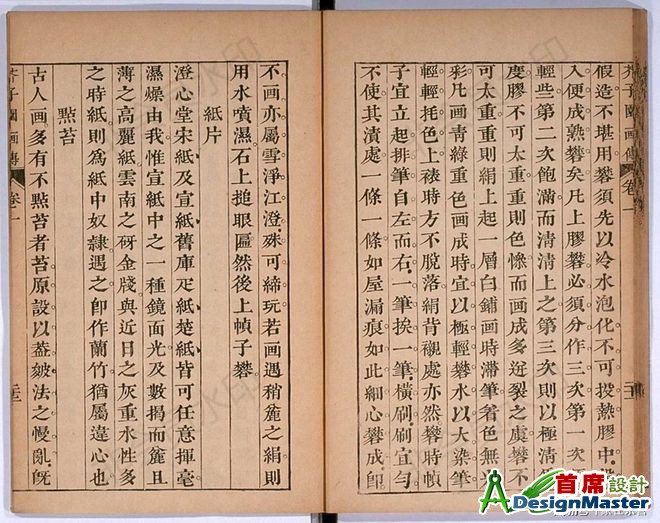 芥子園画傳 卷一
假造不堪用礬須先以冷水泡化不可投熱膠中
入便成熟礬矣凡上膠礬必須分作三次第一次
輕些第二次飽滿而清清上之第三次則以極清
度膠不可太重重則色慘而画成多迸裂之虞礬不
可太重重則絹上起一層白鋪画時滯筆着色無
彩凡画青綠重色画成時宜以極輕礬水以大染筆
輕輕托色上裱時方不脫落絹背襯處亦然礬時幀
子宜立起排筆自左而右一筆挨一筆橫刷刷宜勻
不使其漬處一條一條如屋漏痕如此細心礬成卽
不画亦屬雪淨江澄殊可締玩若画遇稍麄之絹則
用水噴濕石上搥眼匾然後上幀子礬
紙片
澄心堂宋紙及宣紙舊庫疋紙楚紙皆可任意揮毫
濕燥由我惟宣紙中之一種鏡面光及數揭而麄且
薄之高麗紙雲南之砑金牋與近日之灰重水性多
之時紙則為紙中奴隸遇之卽作蘭竹猶屬違心也
點苔
古人画多有不點苔者苔原設以葢皴法之慢亂旣
芥子園画傳 卷一
首席設計
ADesignMaster.com